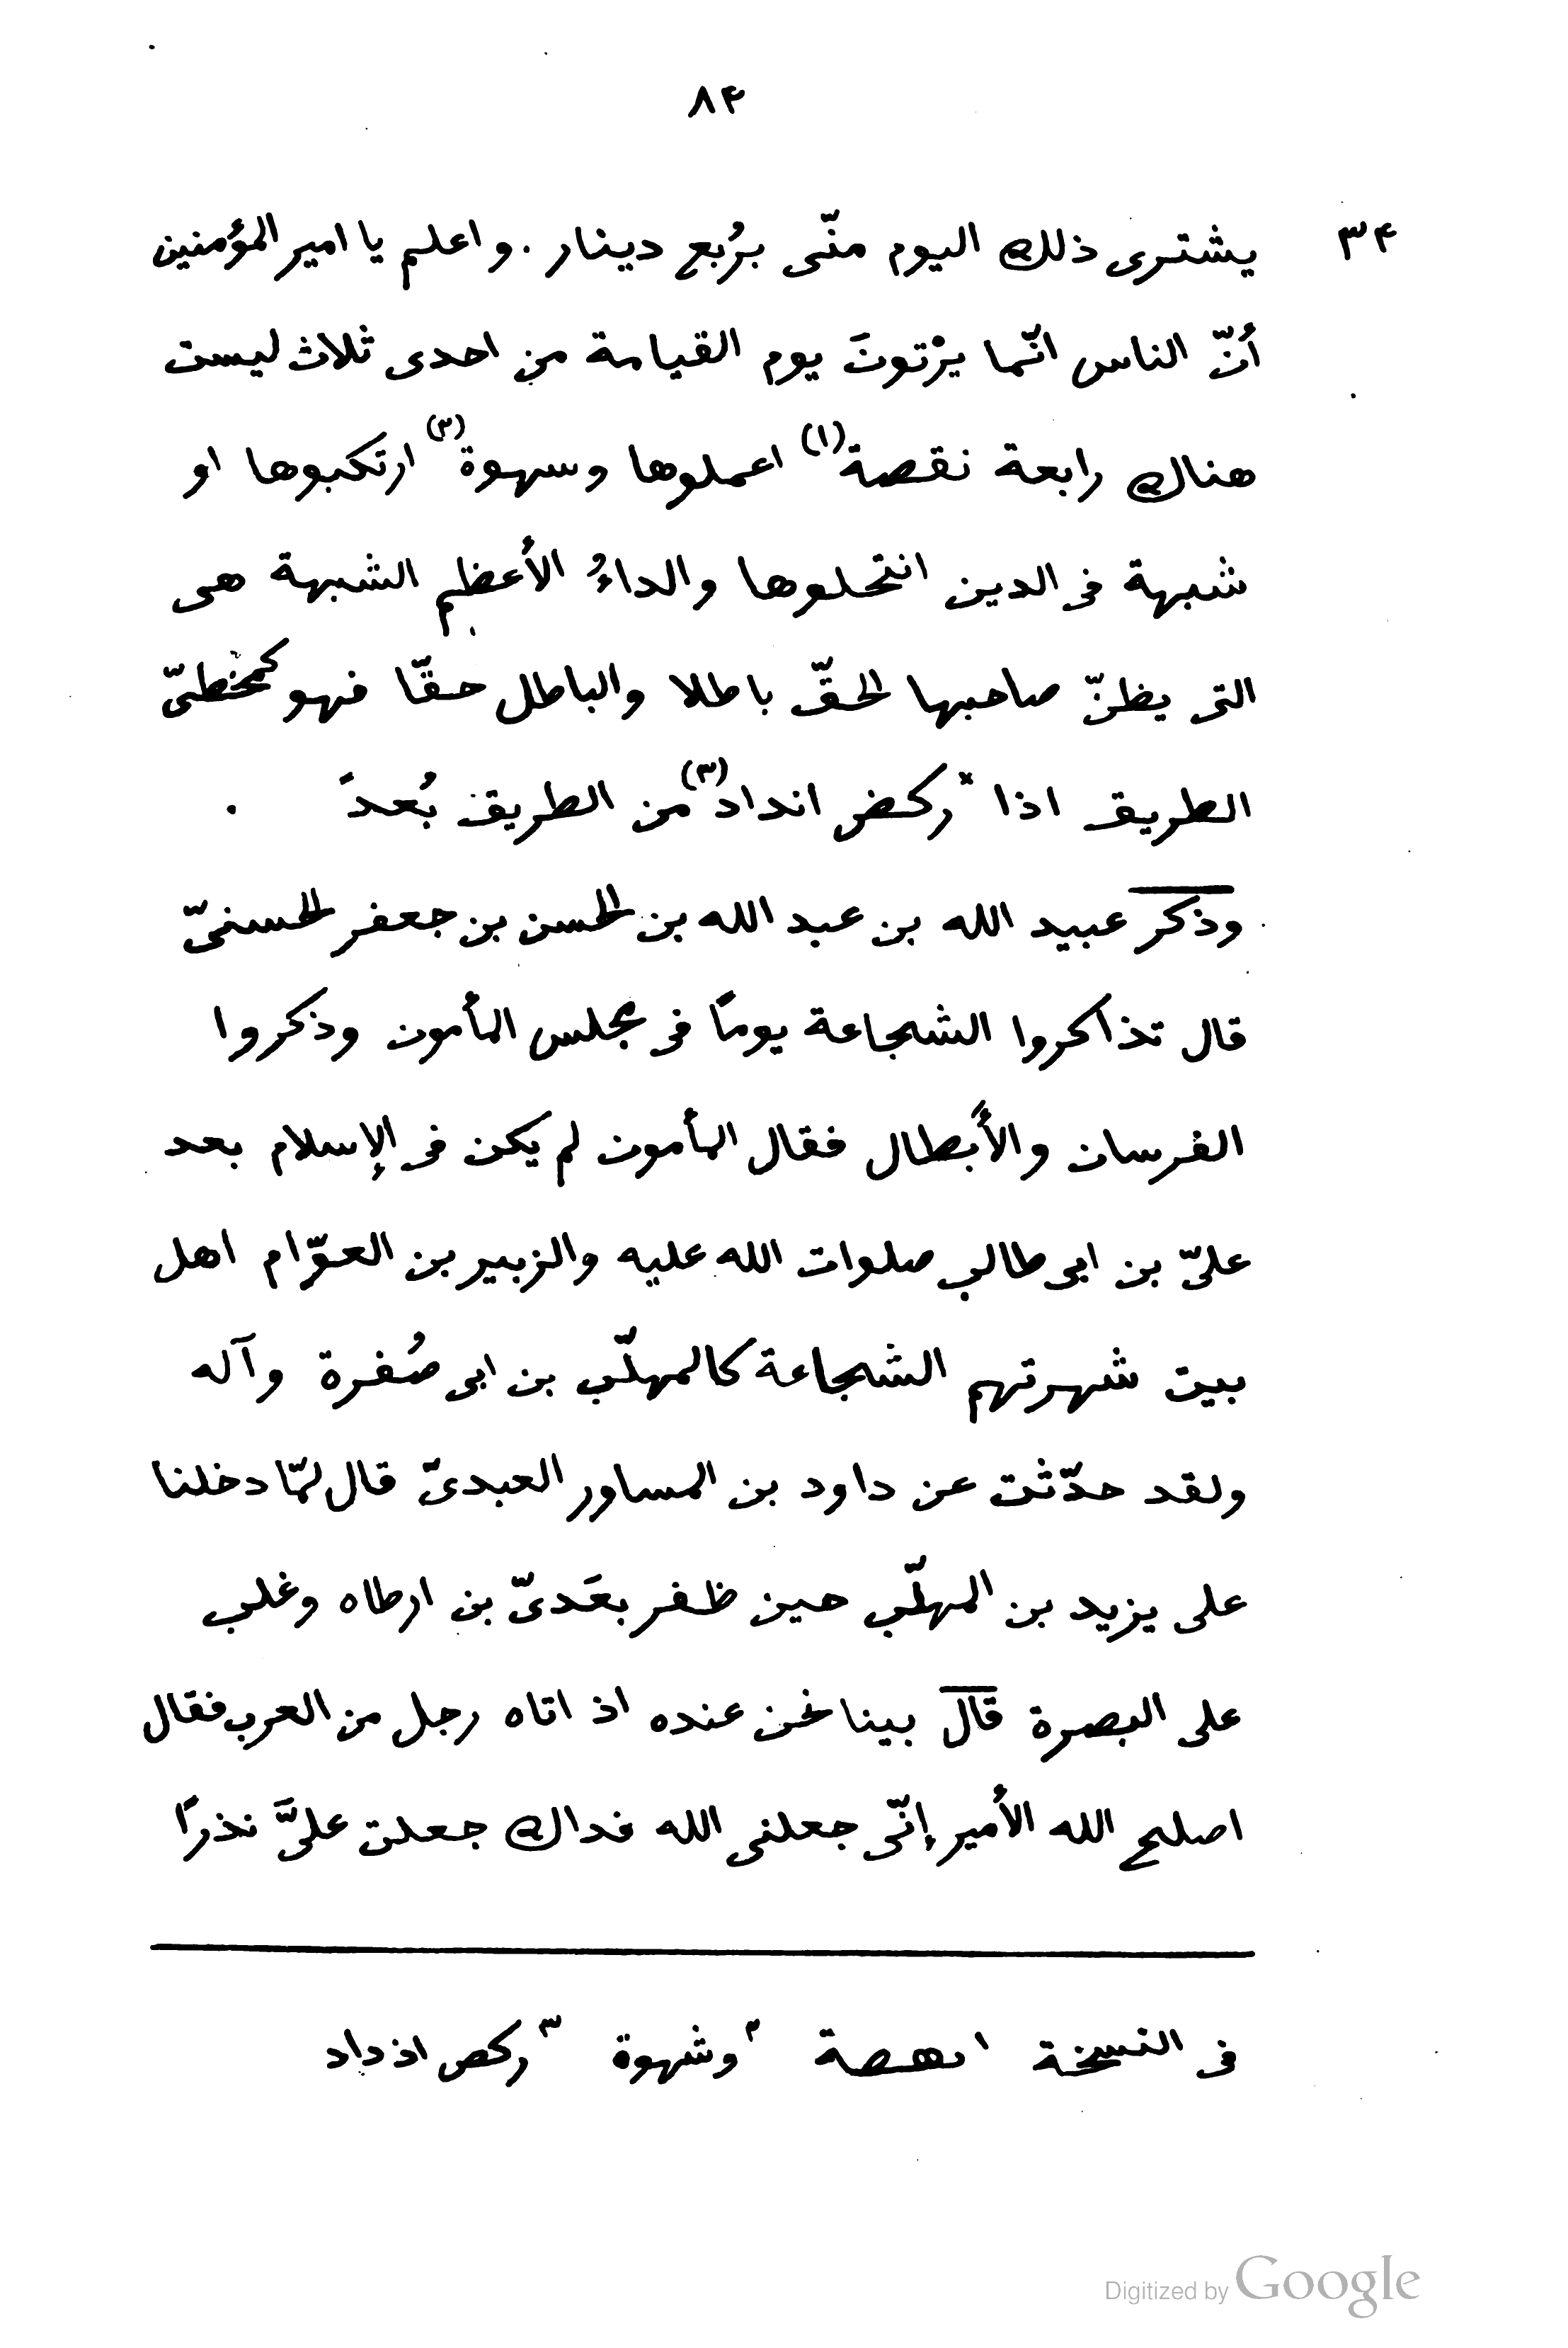 ٨٤
٣٤
يشترى ذلك اليوم منّى برُبع دينار . واعلم يا امير المؤمنين
أنّ الناس انّما يؤتونَ يوم القيامة من احدى ثلاث ليست
هناك رابعة نقصة(١) اعملوها وسهوة(٢) ارتكبوها او
شبهة فى الدين انتحلوها والداءُ الأعظم الشبهة هى
التى يظنّ صاحبها الحقّ باطلا والباطل حقّا فهو كمخطىّ
الطريق اذا *ركض انداد(٣) من الطريق بُعدً .
وذكر عبيد الله بن عبد الله بن الحسن بن جعفر الحسنىّ
قال تذاكروا الشجاعة يومًا فى مجلس المأمون وذكروا
الفرسان والأبطال فقال المأمون لم يكن فى الإسلام بعد
علىّ بن ابى طالب صلوات الله عليه والزبير بن العوّام اهل
بيت شهرتهم الشجاعة كالمهلّب بن ابى صُفرة وآله
ولقد حدّثت عن داود بن المساور العبدىّ قال لمّا دخلنا
على يزيد بن المهلّب حين ظفر بعَدىّ بن ارطاه وغلب
على البصرة قال بينا نحن عنده اذ اتاه رجل من العرب فقال
اصلح الله الأمير إنّى جعلنى الله فداك جعلت علىَّ نذرًا
فى النسخة ١ ىهصة ٢ وشهوة ٣ ركص اذداد
Digitized by Google